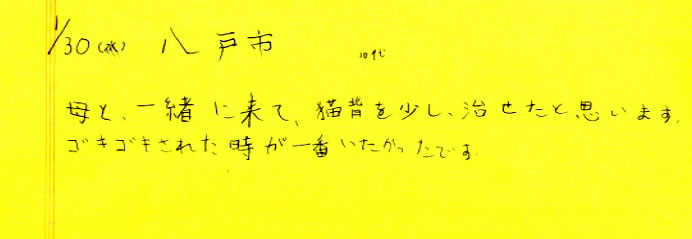 1/30(水) 八戸市 10代
母と、一緒に来て、猫背を少し、治せたと思います。
ゴキゴキされた時が一番いたかったです。